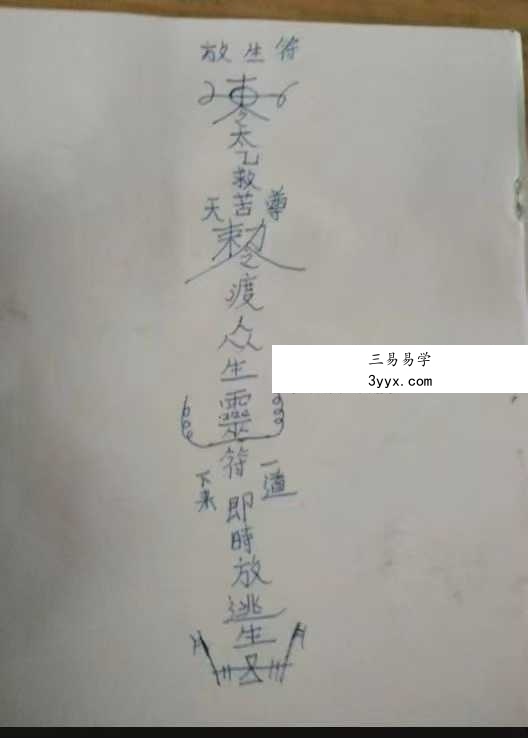 放生符
太乙救苦
天 尊
敕令
渡众生
靈
符
一道
下来
即時放逃生
三易易学
3yyx.com